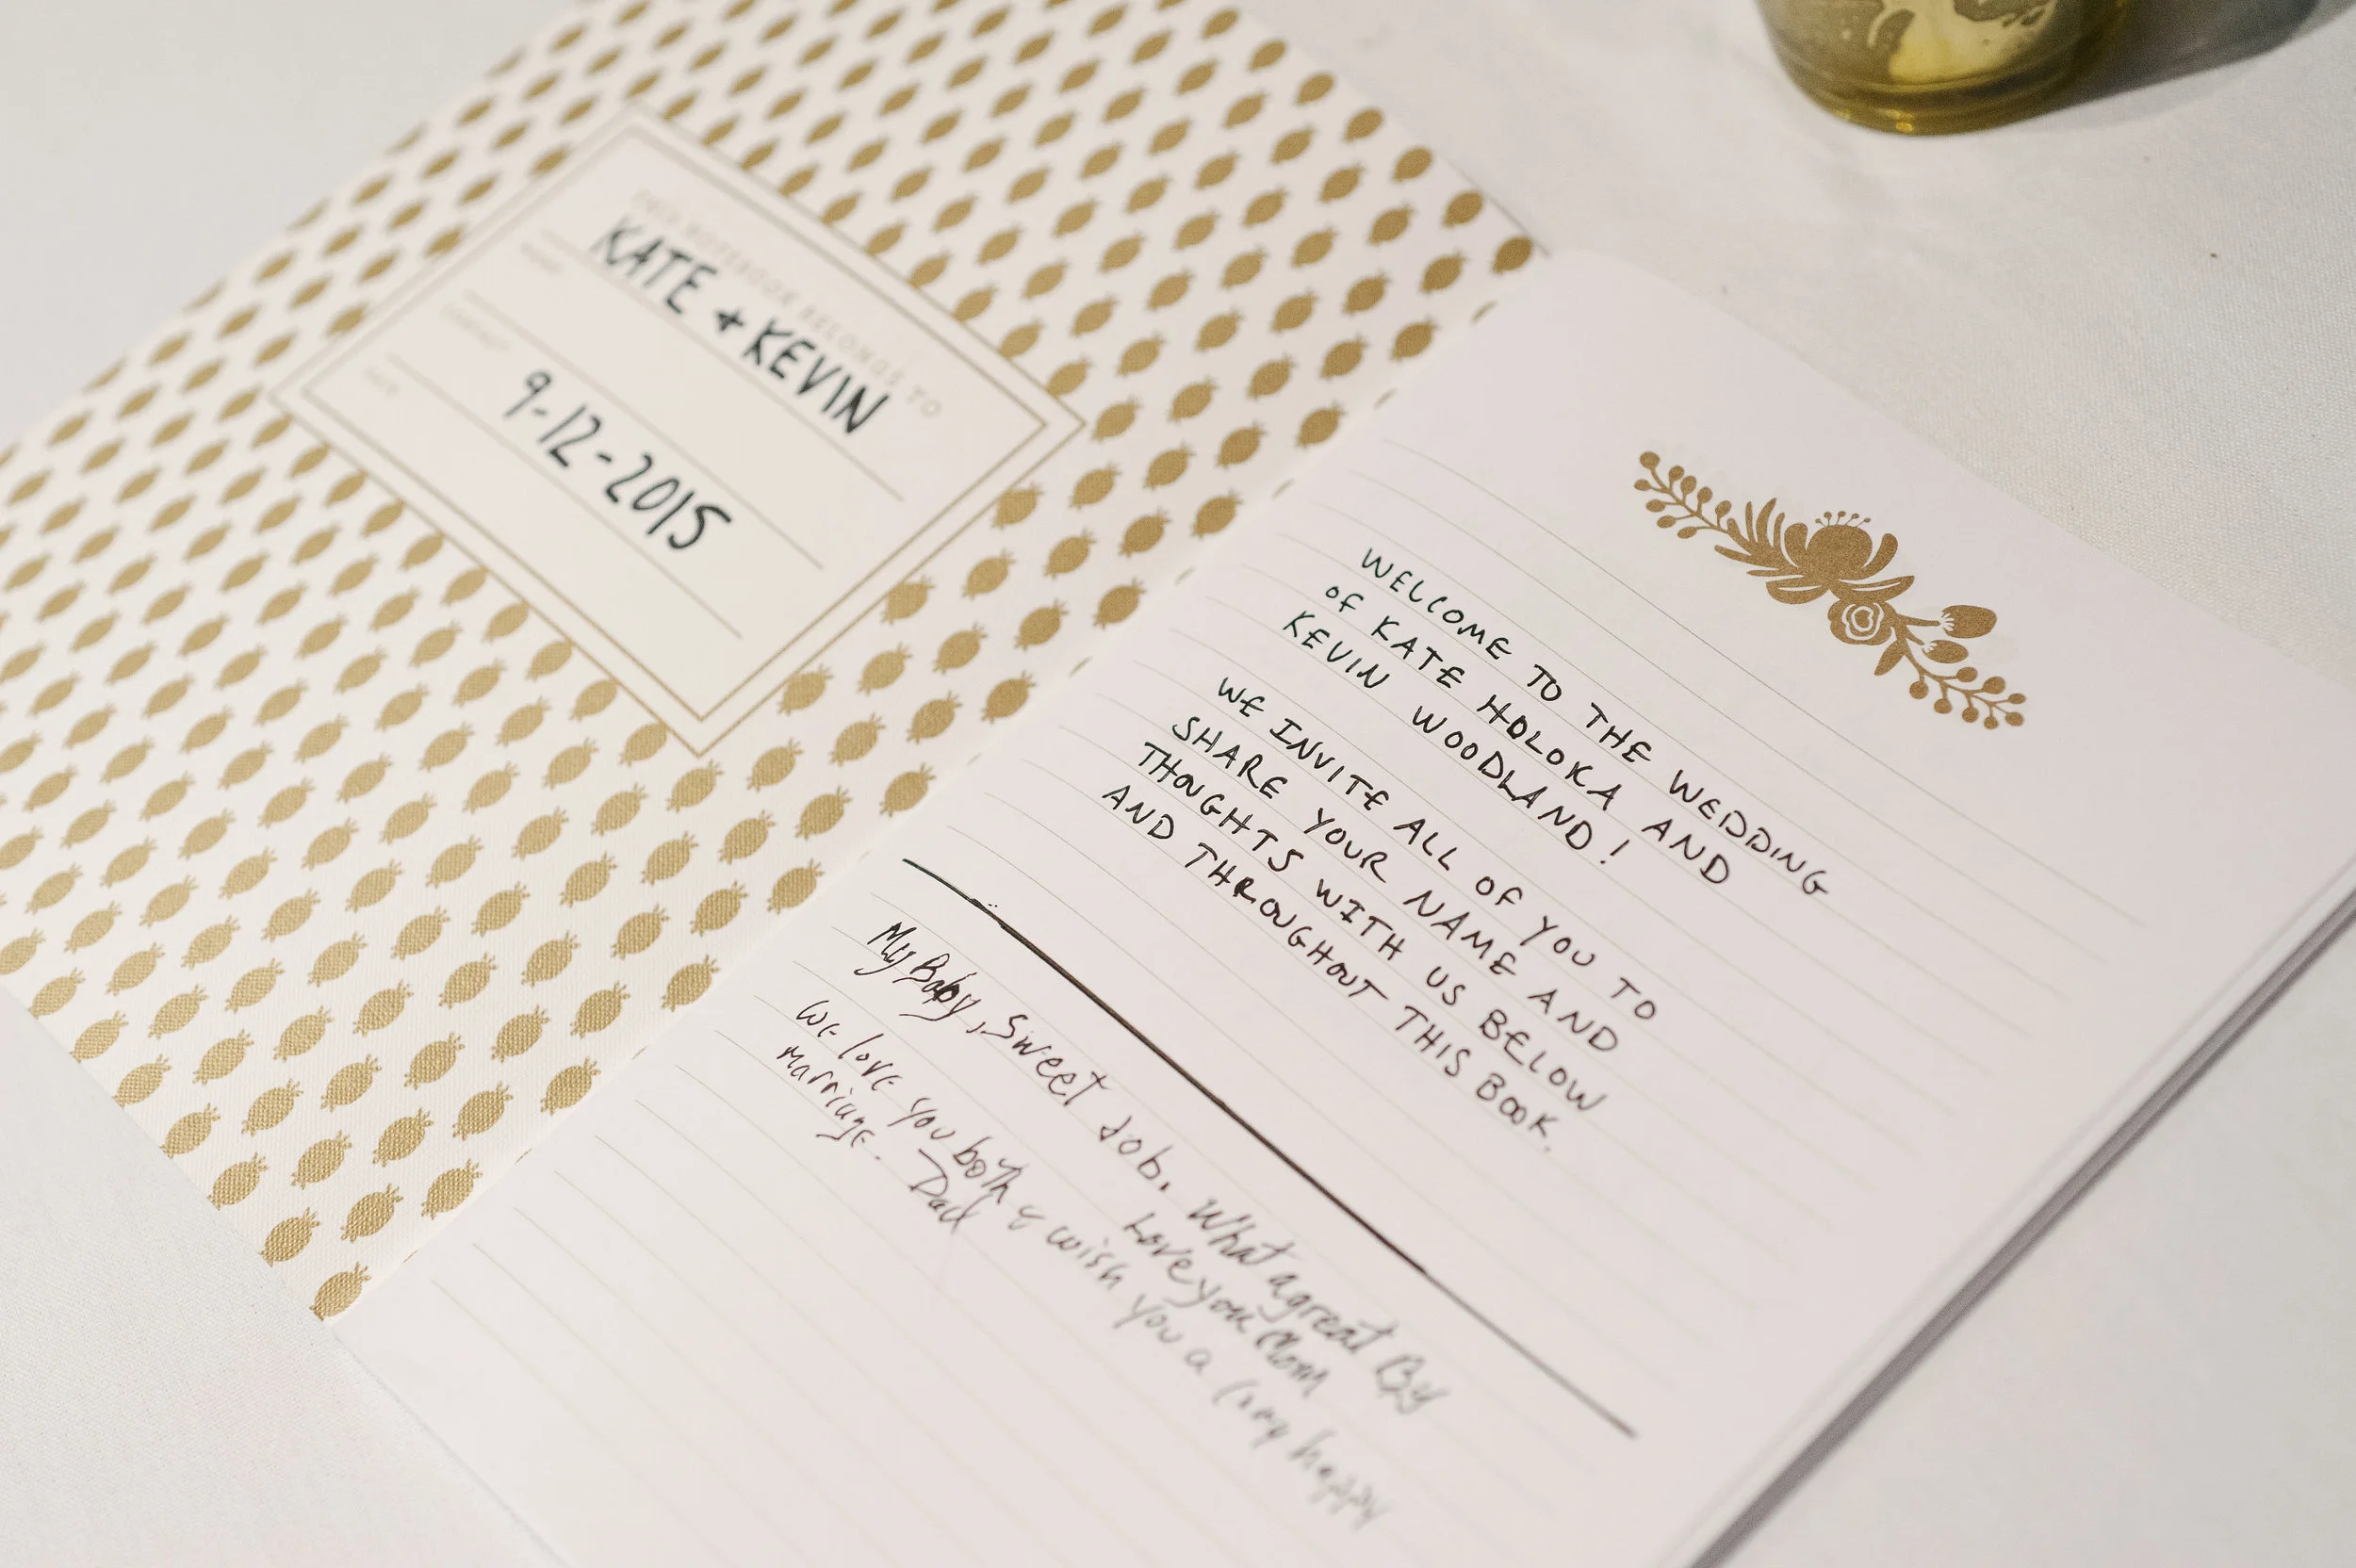 THIS NOTEBOOK BELONGS TO
KATE + KEVIN
NAME
SUBJECT
9-12-2015
DATE
WELCOME TO THE WEDDING
OF KATE HOLOKA AND
KEVIN WOODLAND!
WE INVITE ALL OF YOU TO
SHARE YOUR NAME AND
THOUGHTS WITH US BELOW
AND THROUGHOUT THIS BOOK.
My Baby, Sweet Job. What a great By
Love you Mom
We love you both & wish you a very happy
marriage. Dad